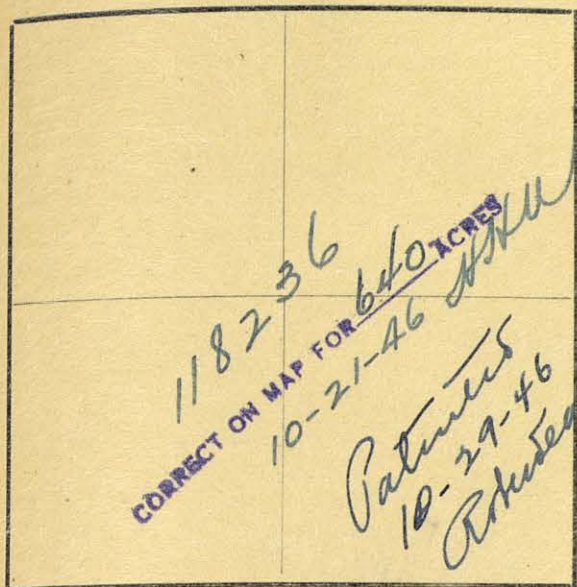 118236
CORRECT ON MAP FOR 640 ACRES
10-21-46
Patented
10-29-46